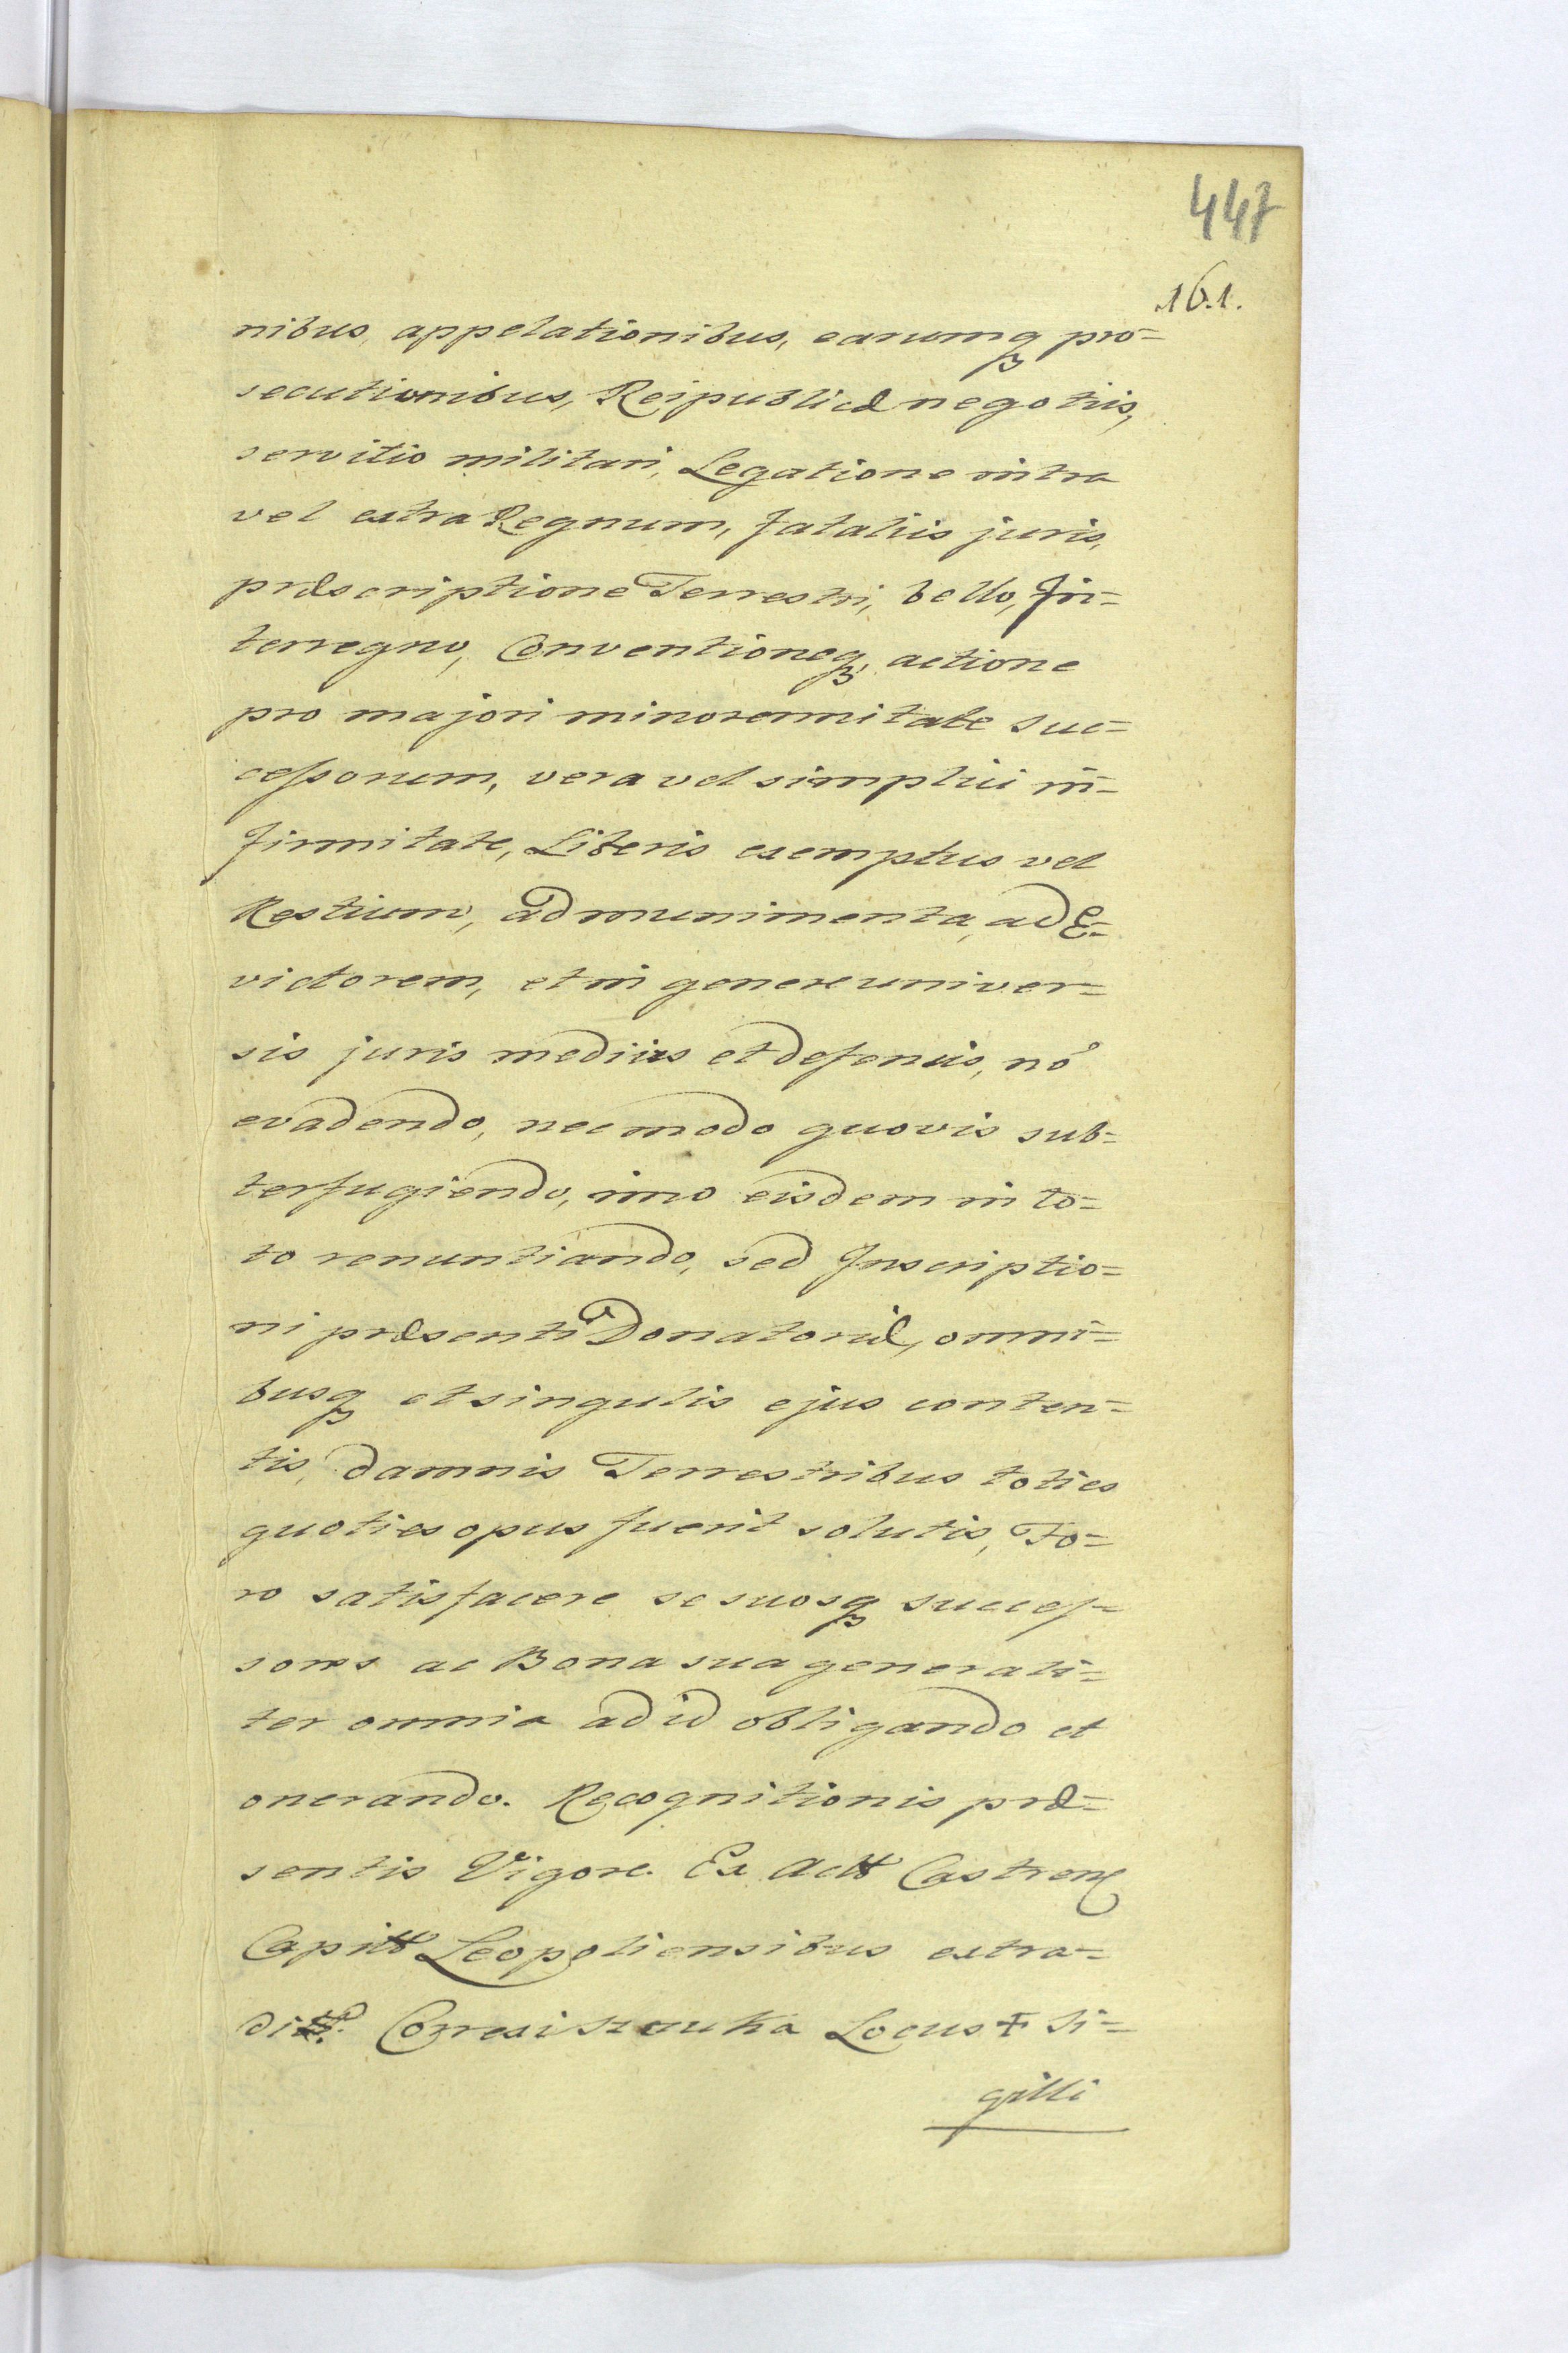 447
161.
nibus, appelationibus, earumq₃ pro=
secutionibus, Reipublicæ negotiis,
servitio militari, Legatione intra
vel extra Regnum, fataliis juris,
præscriptione Terrestri, bello, In=
terregno, Conventioneq₃, actione
pro majori minorennitate suc=
cessorum, vera vel simplici in=
firmitate, Liberis exemptus vel
Restium, ad munimenta, ad E=
victorem, et in genere univer=
sis juris mediis et defensis, nō
evadendo, nec modo quovis sub=
terfugiendo, imo eisdem in to=
to renuntiando, sed Inscriptio=
ni præsenti Donatoriæ, omni=
busq₃ et singulis ejus conten=
tis, damnis Terrestribus toties
quoties opus fuerit solutis, Fo=
ro satisfacere se suosq₃ succes=
sores ac Bona sua generali=
ter omnia ad id obligando et
onerando. Recognitionis præ=
sentis Vigore. Ex Actt Castren
Capitt Leopoliensibus extra=
ditt. Correxi Locus ✝ Si=
gilli